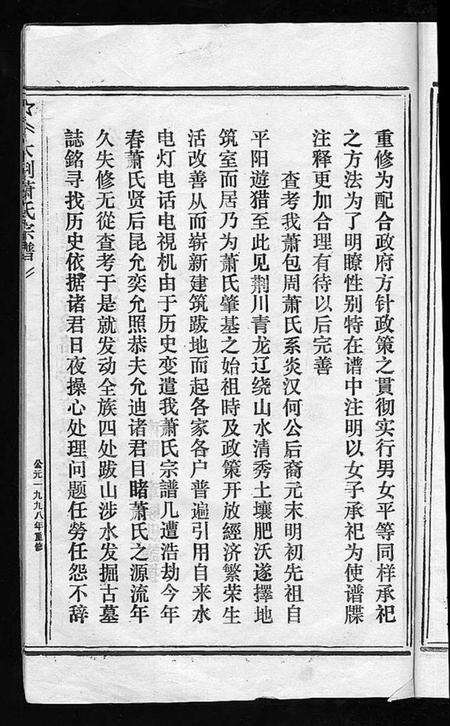 重修为配合政府方针政策之貫彻实行男女平等同样承祀
之方法为了明瞭性别特在谱中注明以女子承祀为使谱牒
注释更加合理有待以后完善
查考我萧包周萧氏系炎汉何公后裔元末明初先祖自
平阳遊猎至此见荆川青龙辽绕山水清秀土壤肥沃遂擇地
筑室而居乃为萧氏肇基之始祖時及政策开放經济繁荣生
活改善从而崭新建筑跋地而起各家各户普遍引用自来水
电灯电话电視机由于历史变遣我萧氏宗譜几遭浩劫今年
春萧氏贤后昆允奕允照恭夫允迪诸君目睹萧氏之源流年
久失修无從查考于是就发动全族四处跋山涉水发掘古墓
誌銘寻找历史依据诸君日夜操心处理问题任勞任怨不辞
萧氏宗譜
公元一九九八年重修